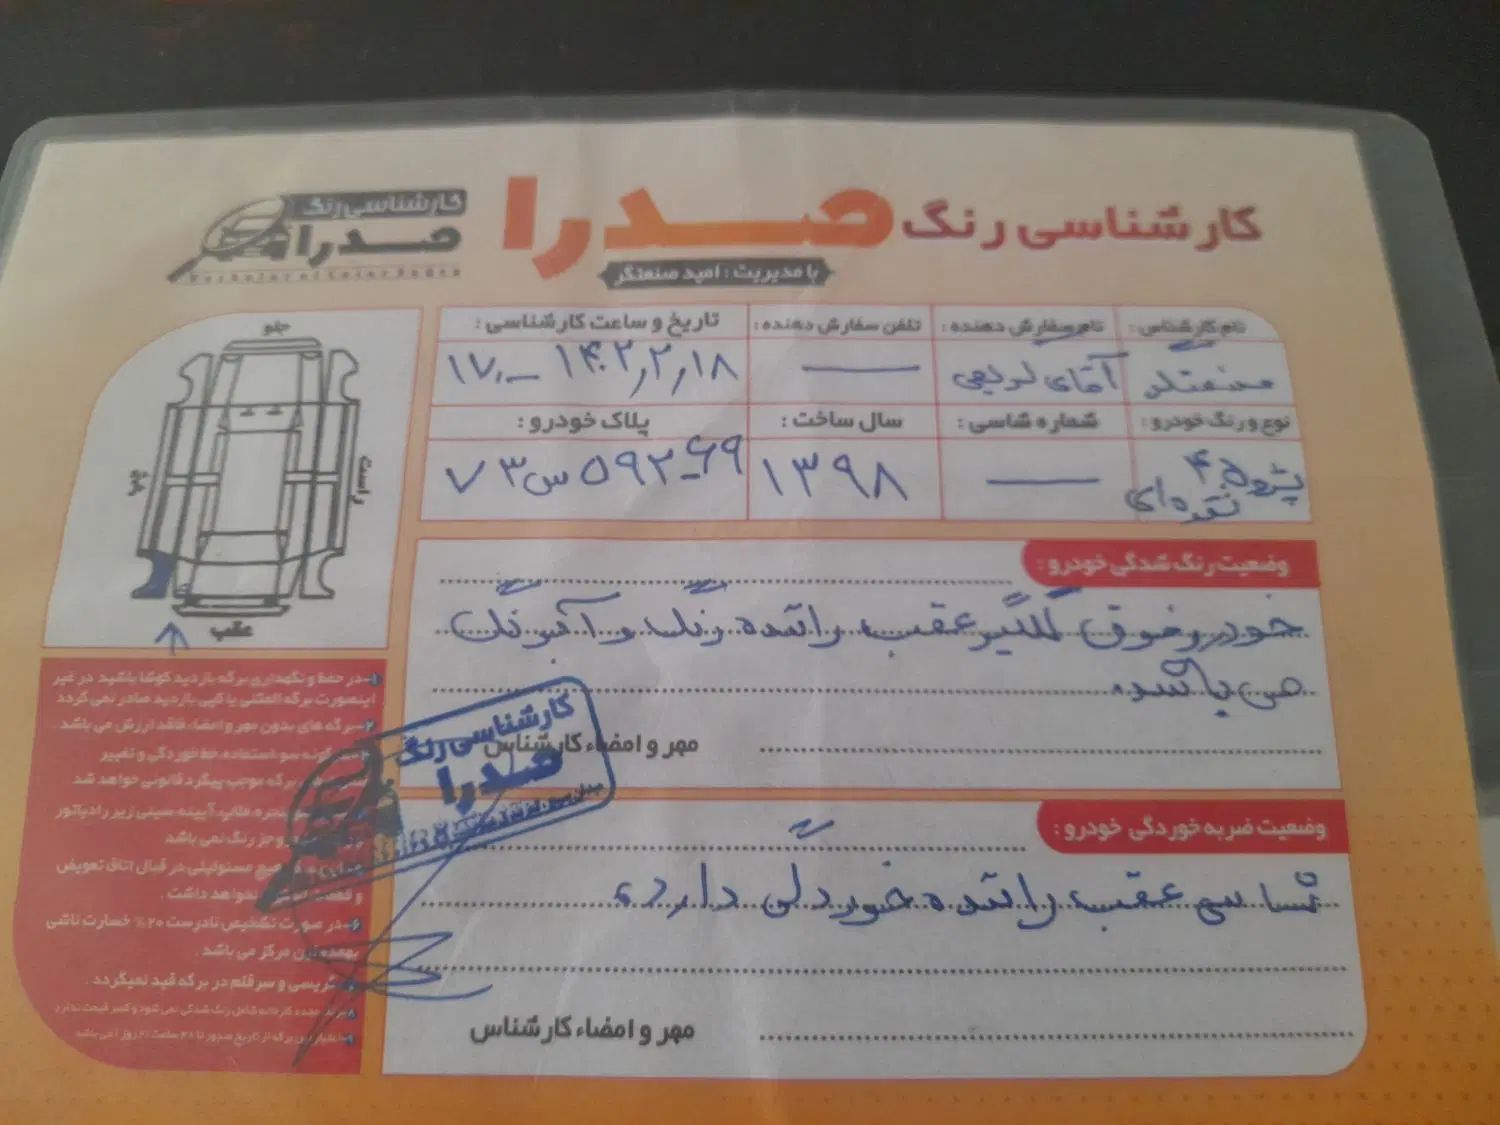 کارشناسی رنگ صدرا
با مدیریت : امید صنعتگر
کارشناسی رنگ
صدرا
نام کارشناس :
نام سفارش دهنده :
تلفن سفارش دهنده :
تاریخ و ساعت کارشناسی :
صنعتگر
آقای
۱۴۰۲٫۲٫۱۸ – ۱۷٫
نوع و رنگ خودرو :
شماره شاسی :
سال ساخت :
پلاک خودرو :
پژو ۴۰۵
نقره ای
۱۳۹۸
۷۳ س ۵۹۲ – ۶۹
جلو
راست
چپ
عقب
وضعیت رنگ شدگی خودرو :
خودرو فوق گلگیر عقب راننده رنگ و آبرنگ
می باشد.
مهر و امضاء کارشناس
وضعیت ضربه خوردگی خودرو :
شاسی عقب راننده خوردگی دارد.
مهر و امضاء کارشناس
کارشناسی رنگ
صدرا
۱-در حفظ و نگهداری برگه بازدید کوشا باشید در غیر
اینصورت برگه المثنی یا کپی بازدید صادر نمی گردد
۲-برگه های بدون مهر و امضاء فاقد ارزش می باشد
گونه سو استفاده، خط خوردگی و تغییر
برگه موجب پیگرد قانونی خواهد شد
آیینه سینی زیر رادیاتور
جز رنگ نمی باشد
هیچ مسئولیتی در قبال اتاق تعویض
نخواهد داشت .
۶-در صورت تشخیص نادرست ۲۰٪ خسارت ناشی
بعهده این مرکز می باشد .
سرقلم در برگه قید نمیگردد .